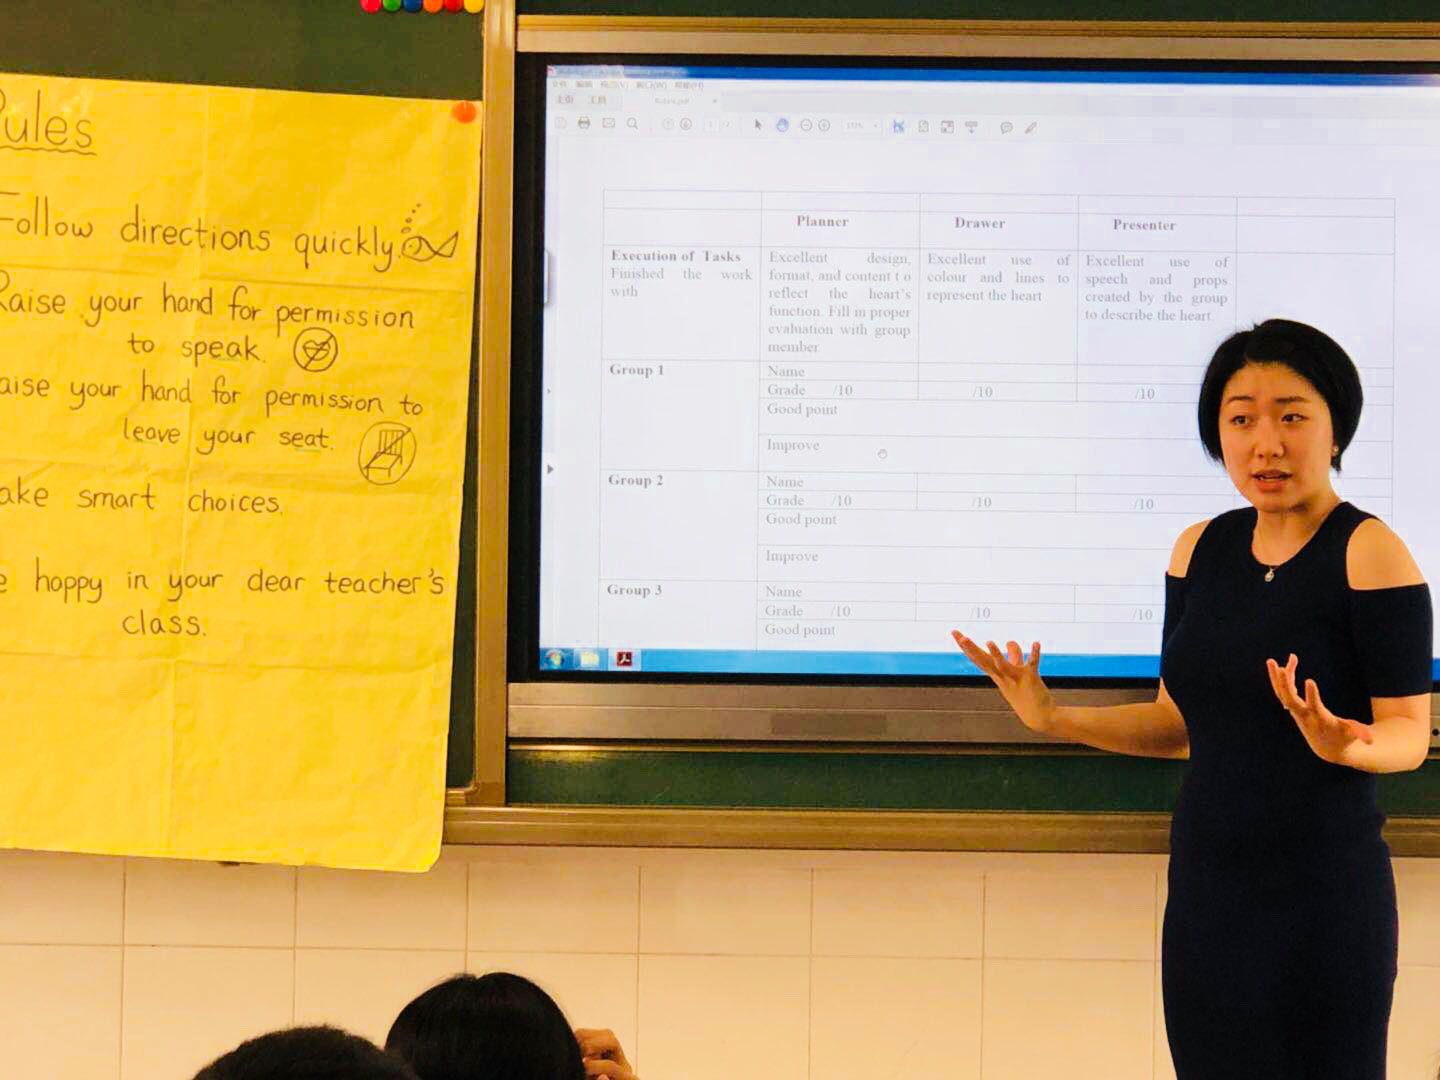 Rules
Follow directions quickly.
Raise your hand for permission
to speak.
aise your hand for permission to
leave your seat.
ake smart choices.
e happy in your dear teacher's
class.
主页 工具
Rubric.pdf
Planner Drawer Presenter
Execution of Tasks
Finished the work
with
Excellent design,
format, and content t o
reflect the heart's
function. Fill in proper
evaluation with group
member
Excellent use of
colour and lines to
represent the heart
Excellent use of
speech and props
created by the group
to describe the heart.
Group 1
Name
Grade /10 /10 /10
Good point
Improve
Group 2
Name
Grade /10 /10 /10
Good point
Improve
Group 3
Name
Grade /10 /10 /10
Good point